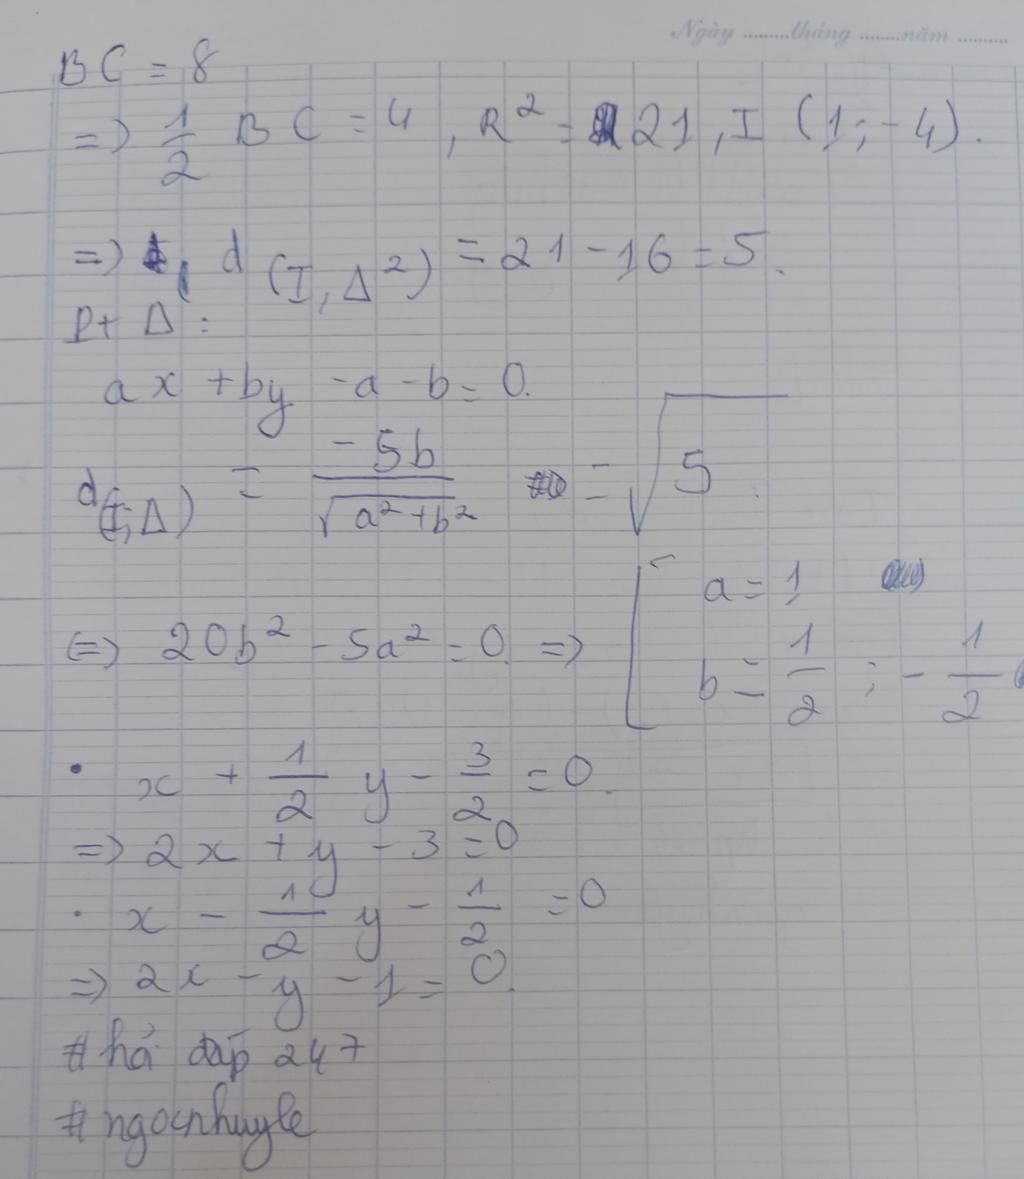 Ngày .........tháng ........năm ..........
BC = 8
=> 1/2 BC = 4, R² = 21, I (1; -4).
=> d (I, Δ²) = 21 - 16 = 5.
Pt Δ :
ax + by - a - b = 0.
d(I; Δ) = -5b/√(a² + b²) = √5.
<=> 20b² - 5a² = 0. => [ a = 1
b = 1/2 ; - 1/2
• x + 1/2 y - 3/2 = 0.
=> 2x + y - 3 = 0
• x - 1/2 y - 1/2 = 0
=> 2x - y - 1 = 0.
# hỏi đáp 247
# ngocnhuyle